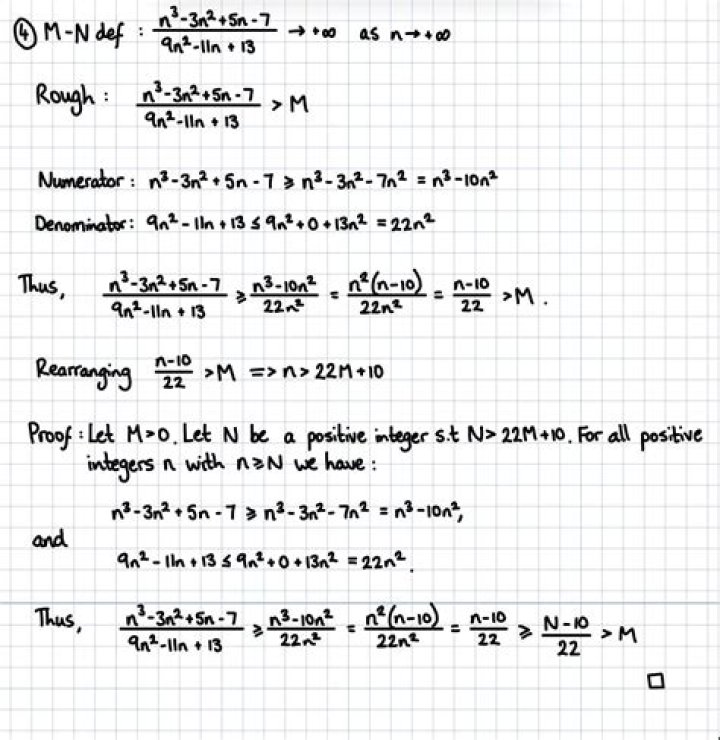 ④ M-N def : n³-3n²+5n-7 / 9n²-11n+13 → +∞ as n→+∞
Rough : n³-3n²+5n-7 / 9n²-11n+13 > M
Numerator : n³-3n²+5n-7 ≥ n³-3n²-7n² = n³-10n²
Denominator : 9n²-11n+13 ≤ 9n²+0+13n² = 22n²
Thus, n³-3n²+5n-7 / 9n²-11n+13 ≥ n³-10n² / 22n² = n²(n-10) / 22n² = n-10 / 22 > M .
Rearranging n-10 / 22 > M => n > 22M+10
Proof : Let M>0. Let N be a positive integer s.t N> 22M+10. For all positive
integers n with n≥N we have :
n³-3n²+5n-7 ≥ n³-3n²-7n² = n³-10n²,
and
9n²-11n+13 ≤ 9n²+0+13n² = 22n².
Thus, n³-3n²+5n-7 / 9n²-11n+13 ≥ n³-10n² / 22n² = n²(n-10) / 22n² = n-10 / 22 ≥ N-10 / 22 > M
□